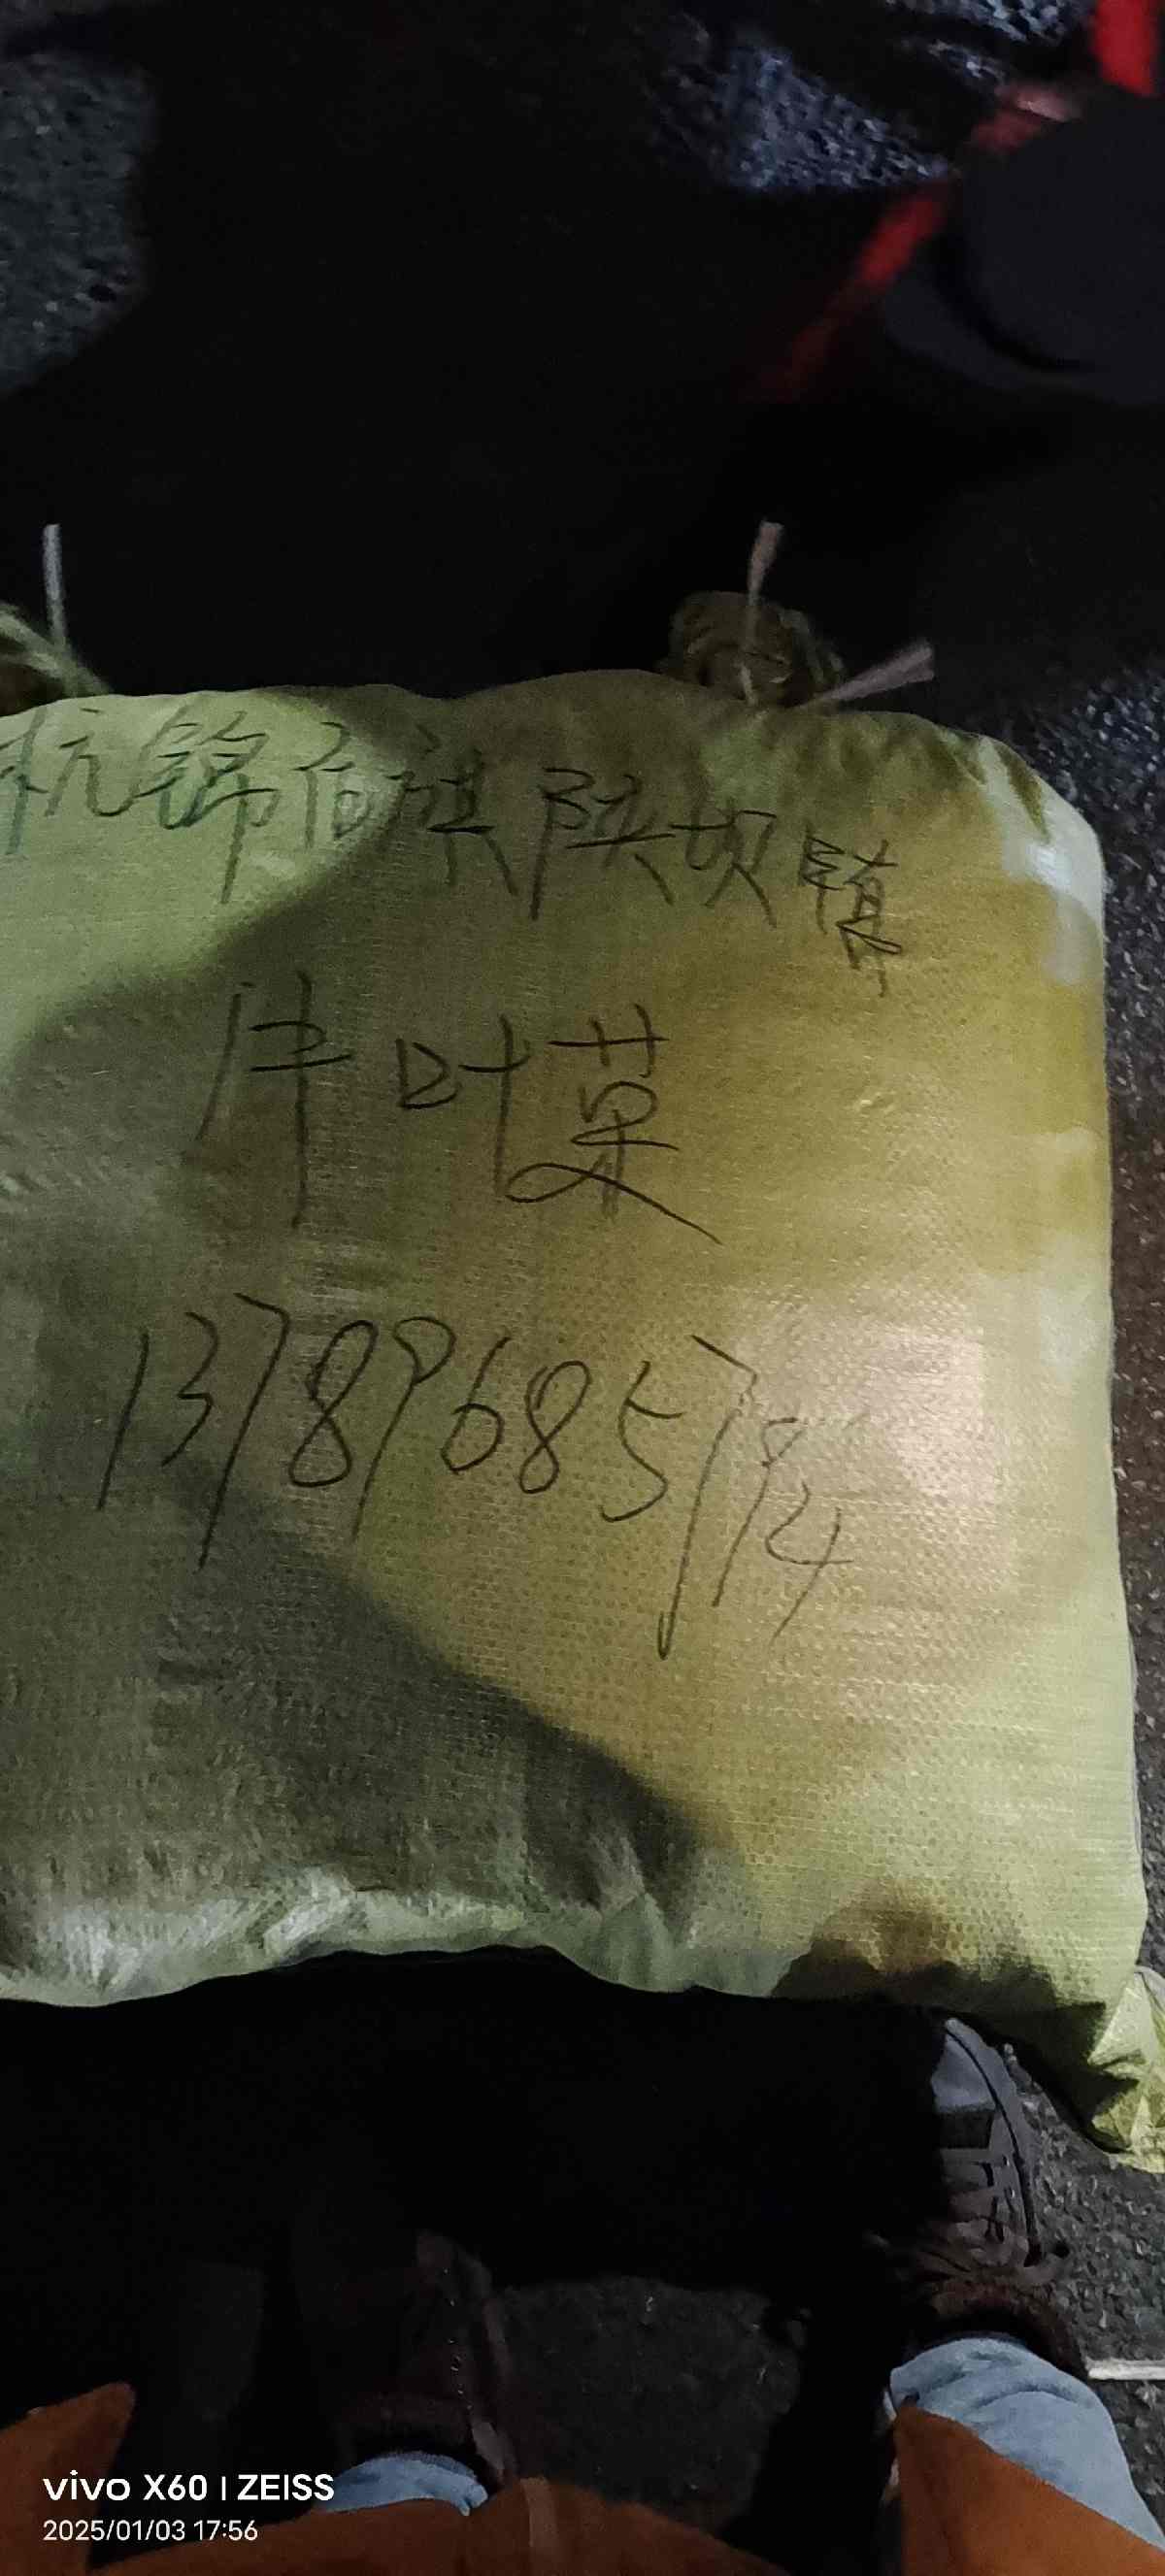 杭锦后旗陕坝镇
叶莫
13789685794
vivo X60 | ZEISS
2025/01/03 17:56